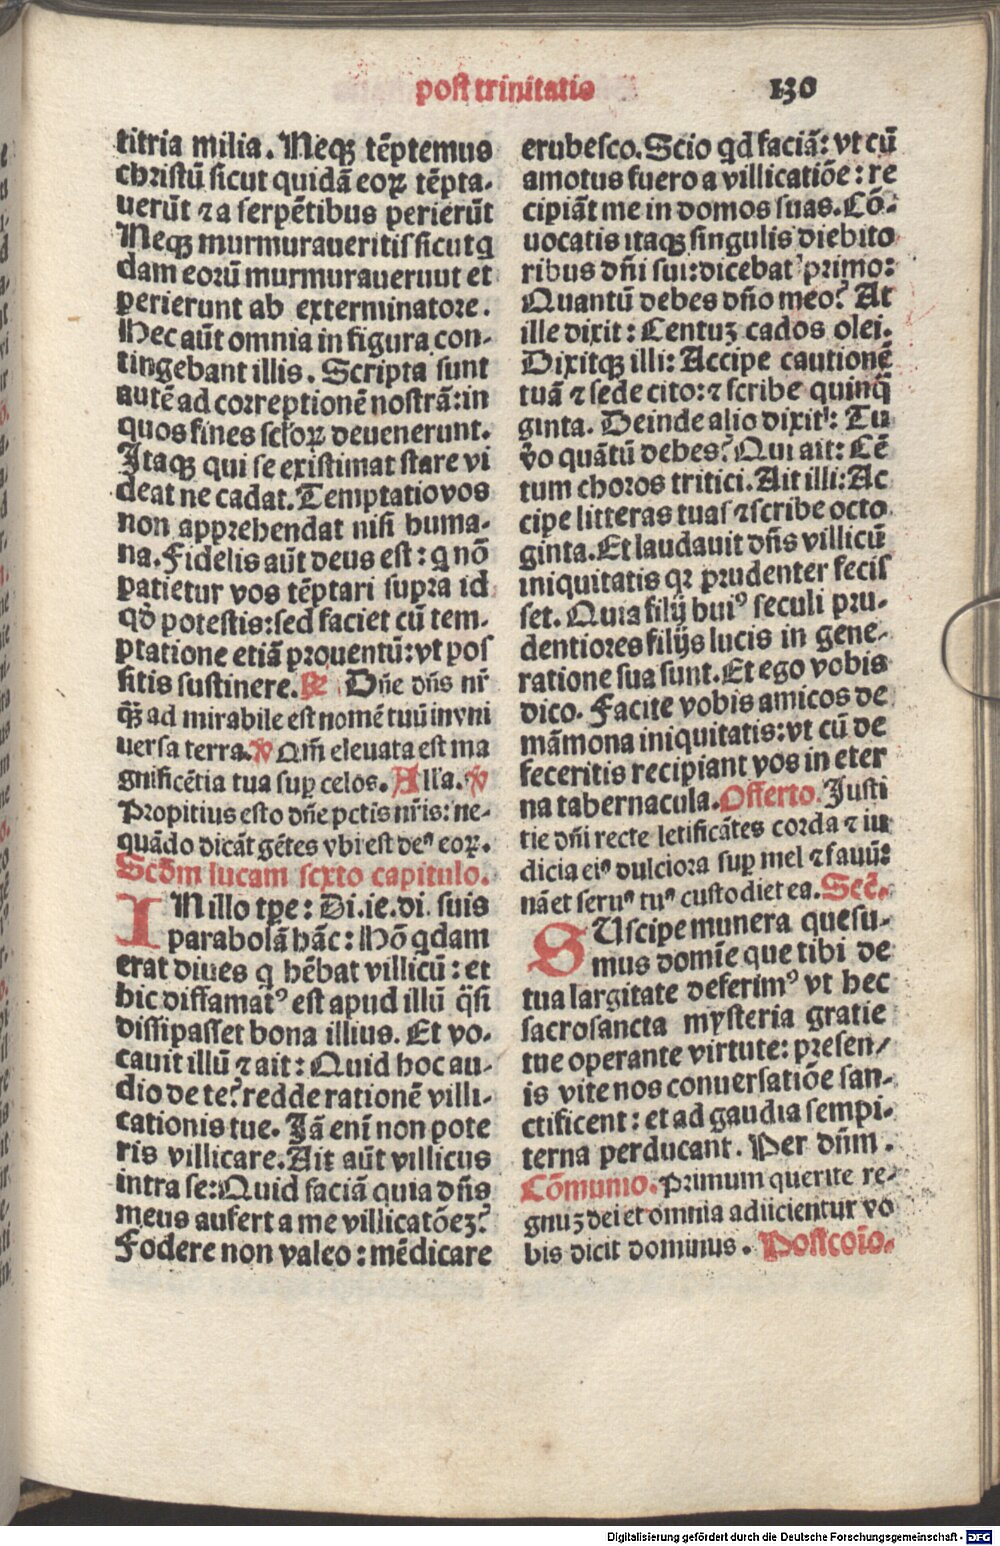 post trinitatis
130
titria milia. Neqꝫ tẽptemus
christũ sicut quidã eoꝝ tẽpta-
uerũt ⁊ a serpẽtibus perierũt
Neqꝫ murmuraueritis sicut q
dam eorũ murmurauerunt et
perierunt ab exterminatore.
Hec aũt omnia in figura con-
tingebant illis. Scripta sunt
autẽ ad correptionẽ nostrã: in
quos fines scľoꝝ deuenerunt.
Itaqꝫ qui se existimat stare vi
deat ne cadat. Temptatio vos
non apprehendat nisi huma-
na. Fidelis aũt deus est: q nõ
patietur vos tẽptari supra id
qď potestis: sed faciet cũ tem-
ptatione etiã prouentũ: vt pos
sitis sustinere. ℟ Dñe dñs nr̃
q̃ꝫ ad mirabile est nomẽ tuũ in vni
uersa terra. ℣ Qm̃ eleuata est ma
gnificẽtia tua suꝑ celos. Alľa. ℣
Propitius esto dñe pctis nr̃is: ne-
quãdo dicãt gẽtes vbi est deꝰ eoꝝ.
Scďm lucam sexto capitulo.
IN illo tꝑe: Di. ie. di. suis
parabolã hãc: Hõ qdam
erat diues q hẽbat villicũ: et
hic diffamatꝰ est apud illũ q̃si
dissipasset bona illius. Et vo-
cauit illũ ⁊ ait: Quid hoc au-
dio de te? redde rationẽ villi-
cationis tue. Iã enĩ non pote
ris villicare. Ait aũt villicus
intra se: Quid faciã quia dñs
meus aufert a me villicatõeꝫ?
Fodere non valeo: mẽdicare
erubesco. Scio qd faciã: vt cũ
amotus fuero a villicatiõe: re
cipiãt me in domos suas. Cõ-
uocatis itaqꝫ singulis diebito
ribus dñi sui: dicebat primo:
Quantũ debes dño meo? At
ille dixit: Centuꝫ cados olei.
Dixitqꝫ illi: Accipe cautionẽ
tuã ⁊ sede cito: ⁊ scribe quinq̃
ginta. Deinde alio dixit: Tu
ṽo quãtũ debes? Qui ait: Cẽ
tum choros tritici. Ait illi: Ac
cipe litteras tuas ⁊ scribe octo
ginta. Et laudauit dñs villicũ
iniquitatis qꝛ prudenter fecis
set. Quia filij huiꝰ seculi pru-
dentiores filijs lucis in gene-
ratione sua sunt. Et ego vobis
dico. Facite vobis amicos de
mãmona iniquitatis: vt cũ de
feceritis recipiant vos in eter
na tabernacula. Offerto. Iusti
tie dñi recte letificãtes corda ⁊ iu
dicia eiꝰ dulciora suꝑ mel ⁊ fauũ:
nã et seruꝰ tuꝰ custodiet ea. Secͤ.
SUscipe munera quesu-
mus domĩe que tibi de
tua largitate deferimꝰ vt hec
sacrosancta mysteria gratie
tue operante virtute: presen/
is vite nos conuersatiõe san-
ctificent: et ad gaudia sempi-
terna perducant. Per dñm.
Cõmunio. Primum querite re-
gnuꝫ dei et omnia adiicientur vo
bis dicit dominus. Postcoĩo.
Digitalisierung gefördert durch die Deutsche Forschungsgemeinschaft - DFG